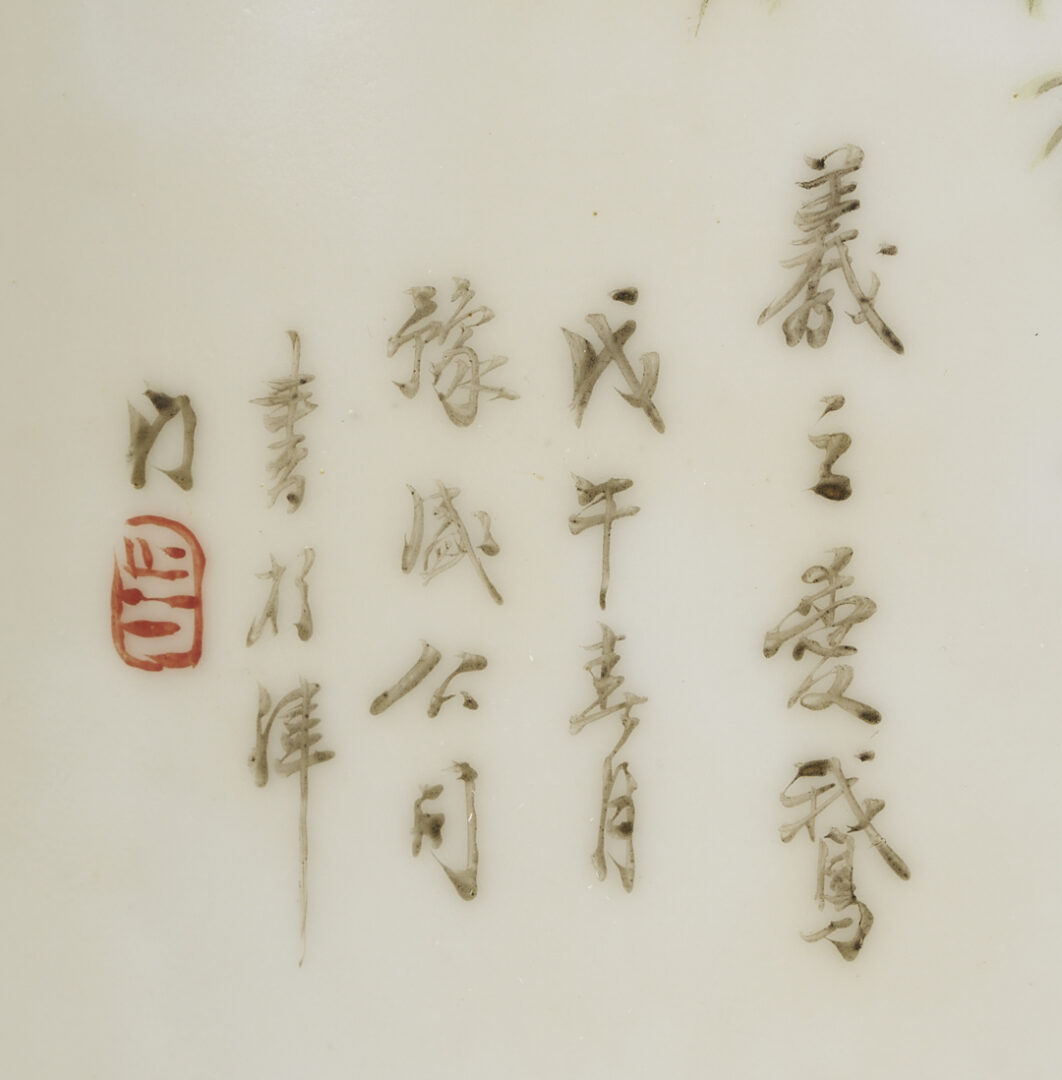 羲之愛鵞
戊午春月
豫盛公司
書於津
门